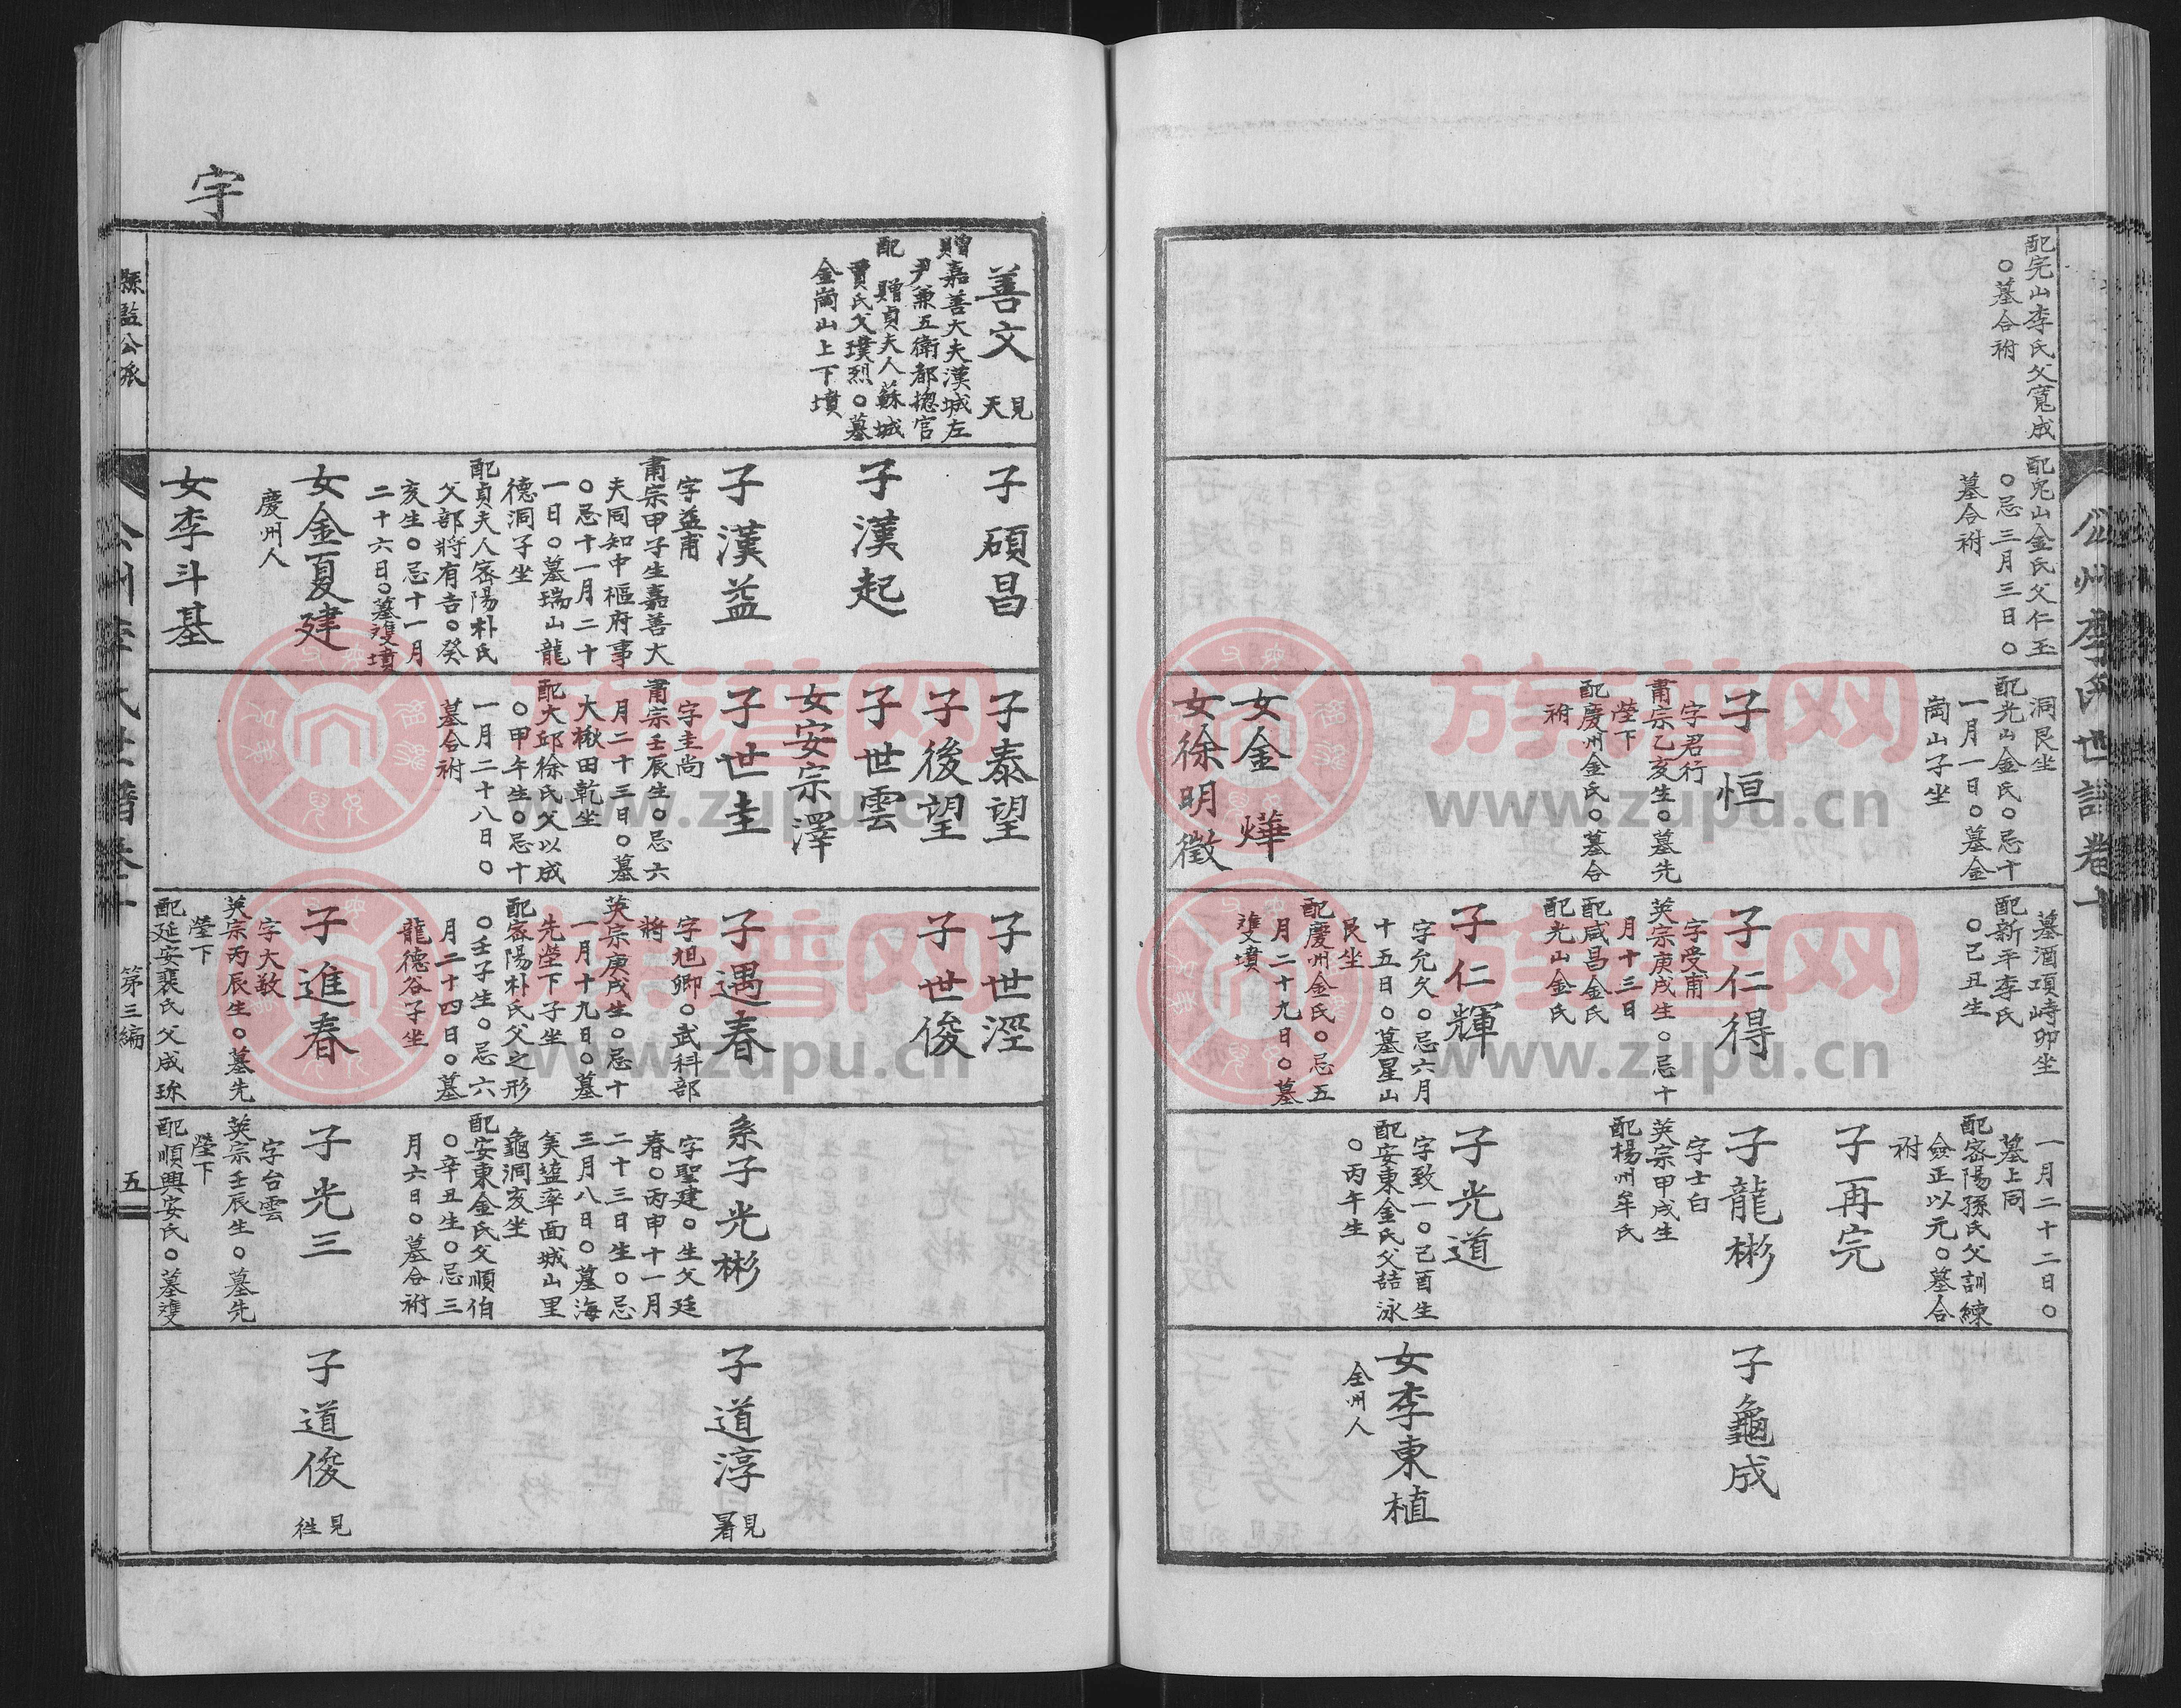 公州李氏世譜卷十
配完山李氏父寬成
○墓合祔
配完山金氏父仁玉
○忌三月三日○
墓合祔
洞艮坐
配光山金氏○忌十
一月一日○墓金
崗山子坐
子恒
字君行
肅宗乙亥生○墓先
塋下
配慶州金氏○墓合
祔
女金燁
女徐明徵
墓酒項峙卯坐
配新平李氏
○己丑生
子仁得
字受甫
英宗庚戌生○忌十
月十三日
配咸昌金氏
配光山金氏
子仁輝
字允久○忌六月
十五日○墓星山
艮坐
配慶州金氏○忌五
月二十九日○墓
雙墳
一月二十二日○
墓上同
配密陽孫氏父訓練
僉正以元○墓合
祔
子再完
子龍彬
字士白
英宗甲戌生
配楊州牟氏
子光道
字致一○己酉生
配安東金氏父喆泳
○丙午生
子龜成
女李東植
全州人
字
善文
見天
贈嘉善大夫漢城左
尹兼五衛都摠官
配 贈貞夫人蘇城
賈氏父璞烈○墓
金崗山上下墳
子碩昌
子漢起
子漢益
字益甫
肅宗甲子生嘉善大
夫同知中樞府事
○忌十一月二十
一日○墓瑞山龍
德洞子坐
配貞夫人密陽朴氏
父部將有吉○癸
亥生○忌十一月
二十六日○墓雙墳
女金夏建
慶州人
女李斗基
子泰望
子後望
子世雲
女安宗澤
子世圭
字圭尚
肅宗壬辰生○忌六
月二十三日○墓
大楸田乾坐
配大邱徐氏父以成
○甲午生○忌十
一月二十八日○
墓合祔
子世涇
子世俊
子遇春
字旭卿○武科部
將
英宗庚戌生○忌十
一月十九日○墓
先塋下子坐
配密陽朴氏父之形
○壬子生○忌六
月二十四日○墓
龍德谷子坐
子進春
字大敎
英宗丙辰生○墓先
塋下
配延安裵氏父成珎
系子光彬
字聖建○生父廷
春○丙申十一月
二十三日生○忌
三月八日○墓海
美葢率面城山里
龜洞亥坐
配安東金氏父順伯
○辛丑生○忌三
月六日○墓合祔
子光三
字台雲
英宗壬辰生○墓先
塋下
配順興安氏○墓雙
子道淳
見署
子道俊
見徃
縣監公派
公州李氏世譜卷十
第三編
五
族谱网
www.zupu.cn
族谱网
www.zupu.cn
族谱网
www.zupu.cn
族谱网
www.zupu.cn